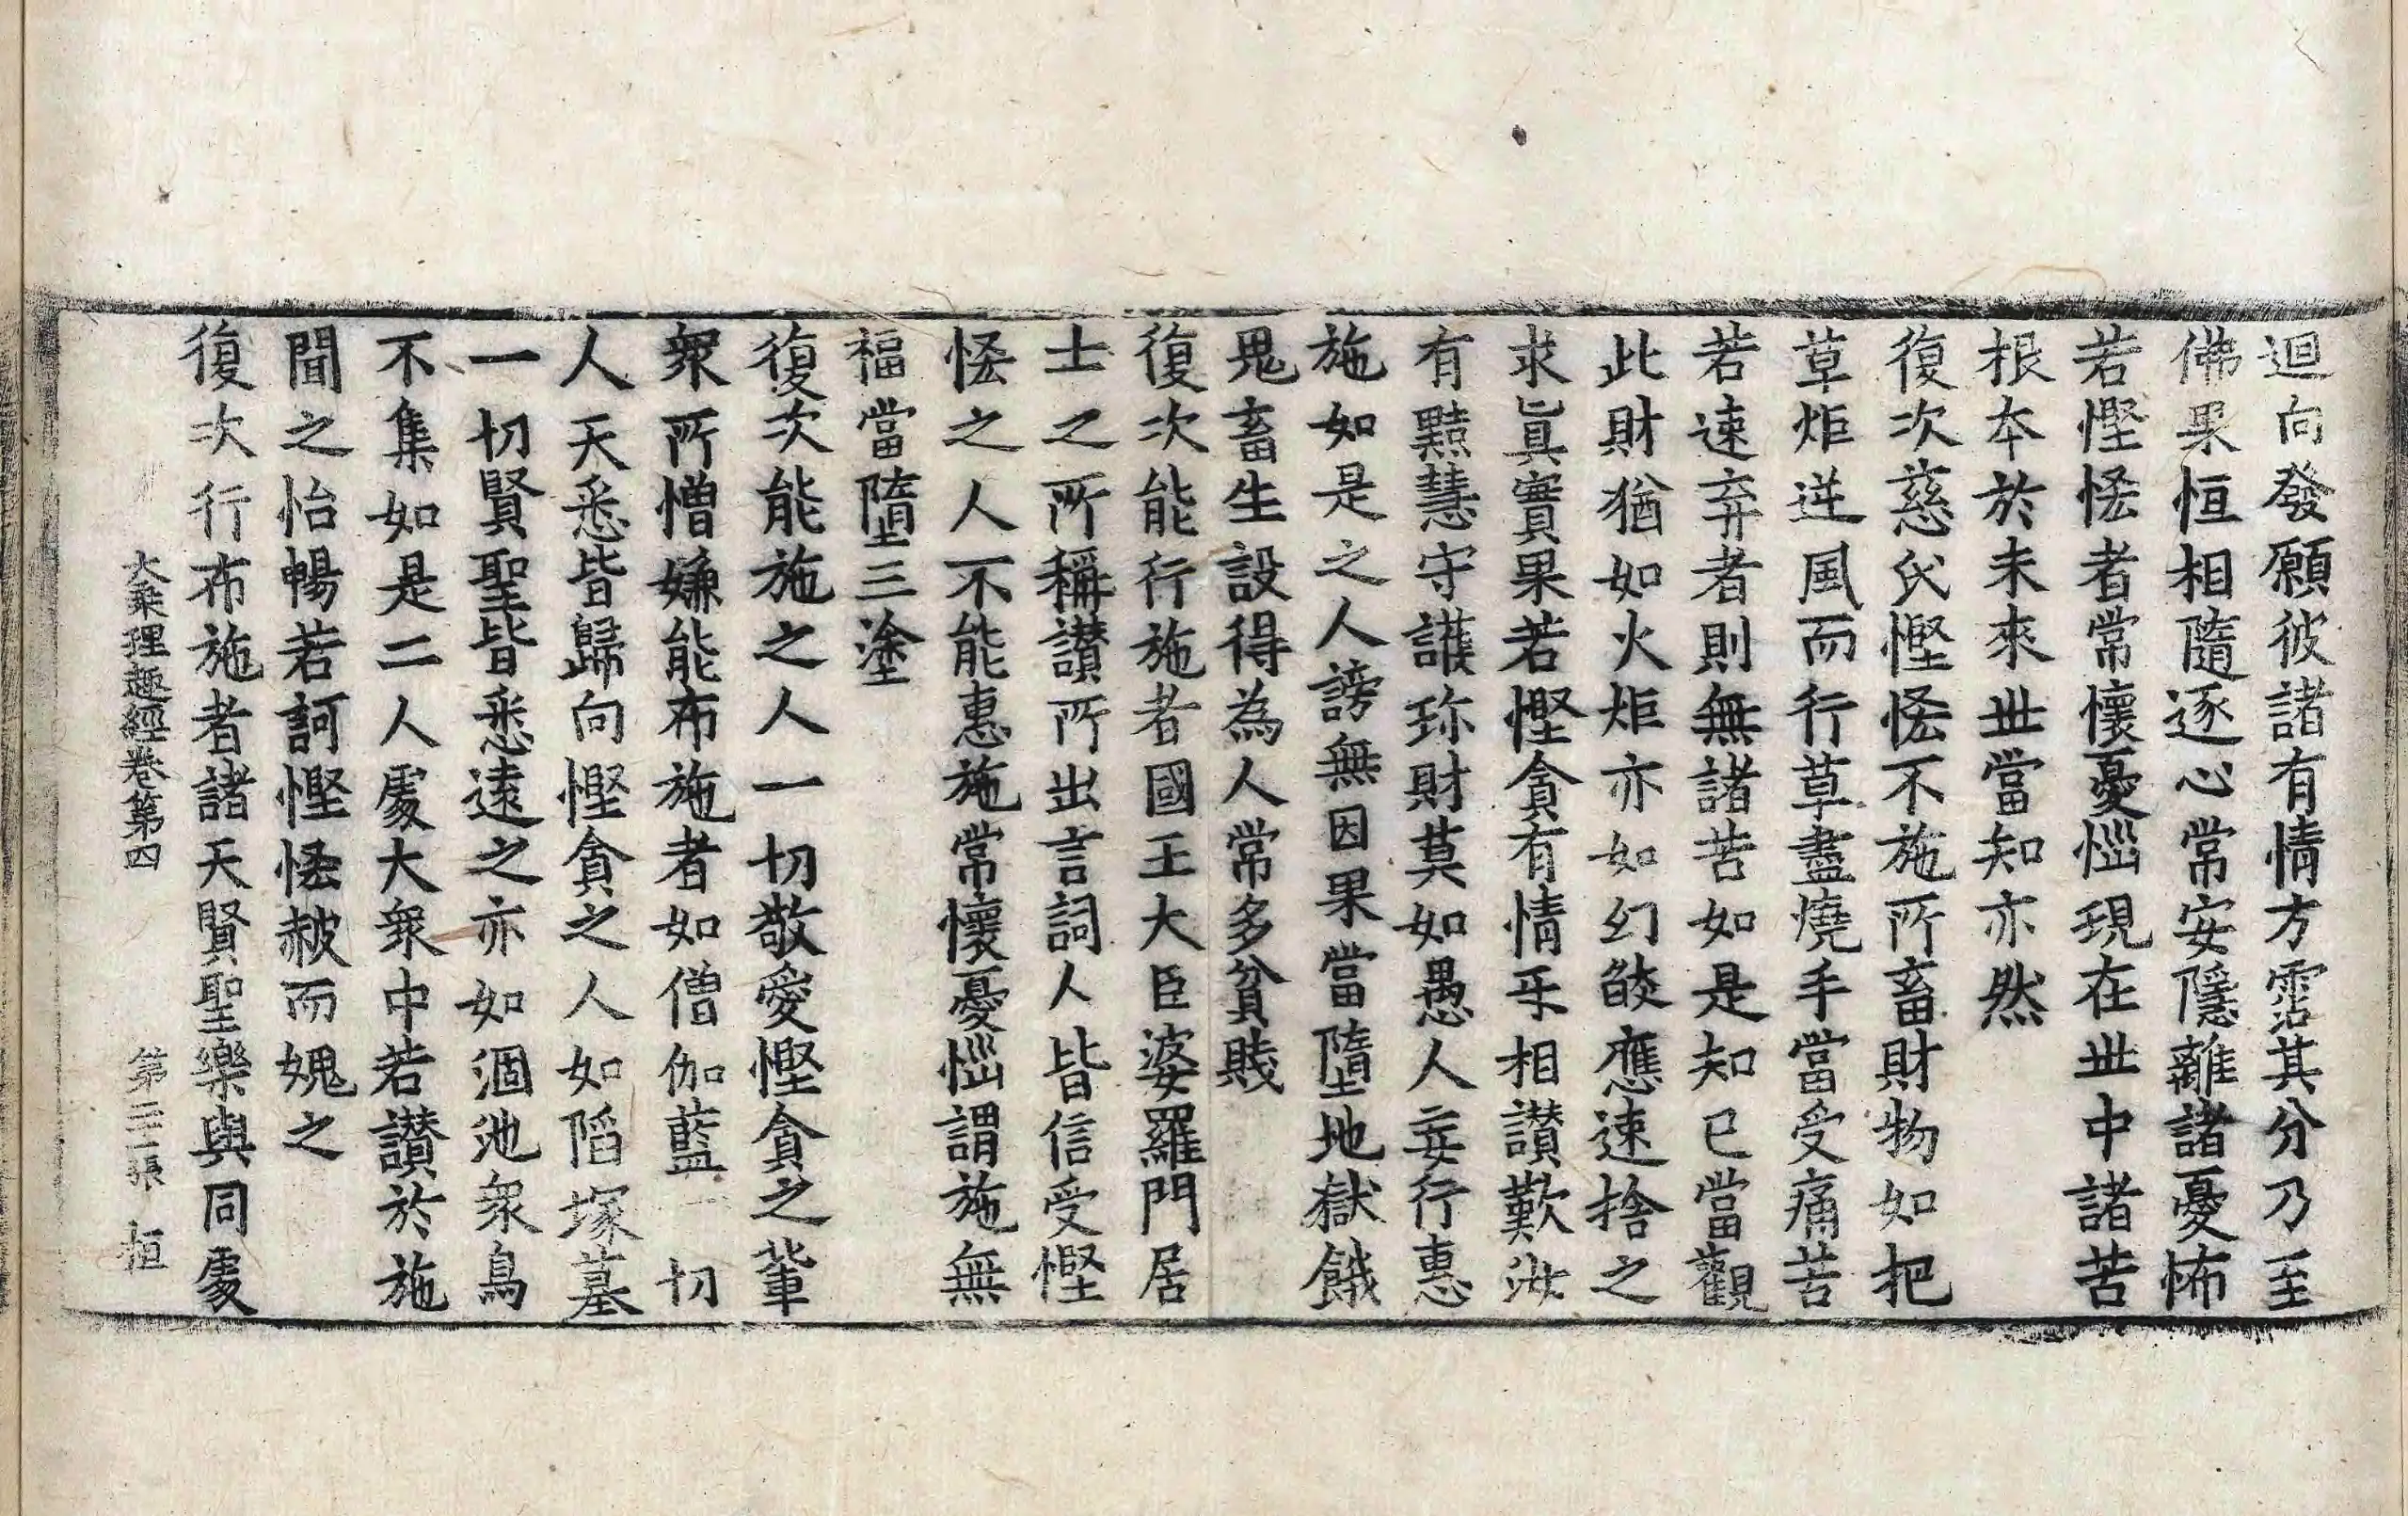 迴向發願彼諸有情方霑其分乃至
佛果恒相隨逐心常安隱離諸憂怖
若慳恡者常懷憂惱現在丗中諸苦
根本於未來丗當知亦然
復次慈氏慳恡不施所畜財物如把
草炬逆風而行草盡燒手當受痛苦
若速弃者則無諸苦如是知已當觀
此財猶如火炬亦如幻𦦨應速捨之
求眞實果若慳貪有情㸦相讃歎汝
有黠慧守護珎財莫如愚人妄行惠
施如是之人謗無因果當墮地獄餓
鬼畜生設得為人常多貧賎
復次能行施者國王大臣婆羅門居
士之所稱讃所出言詞人皆信受慳
恡之人不能惠施常懷憂惱謂施無
福當墮三塗
復次能施之人一切敬愛慳貪之輩
衆所憎嫌能布施者如僧伽藍一切
人天悉皆歸向慳貪之人如䧟塚墓
一切賢聖皆悉遠之亦如涸池衆鳥
不集如是二人處大衆中若讃於施
聞之怡暢若訶慳恡赧而媿之
復次行布施者諸天賢聖樂與同處
大乘理趣經卷第四 第二張 恒